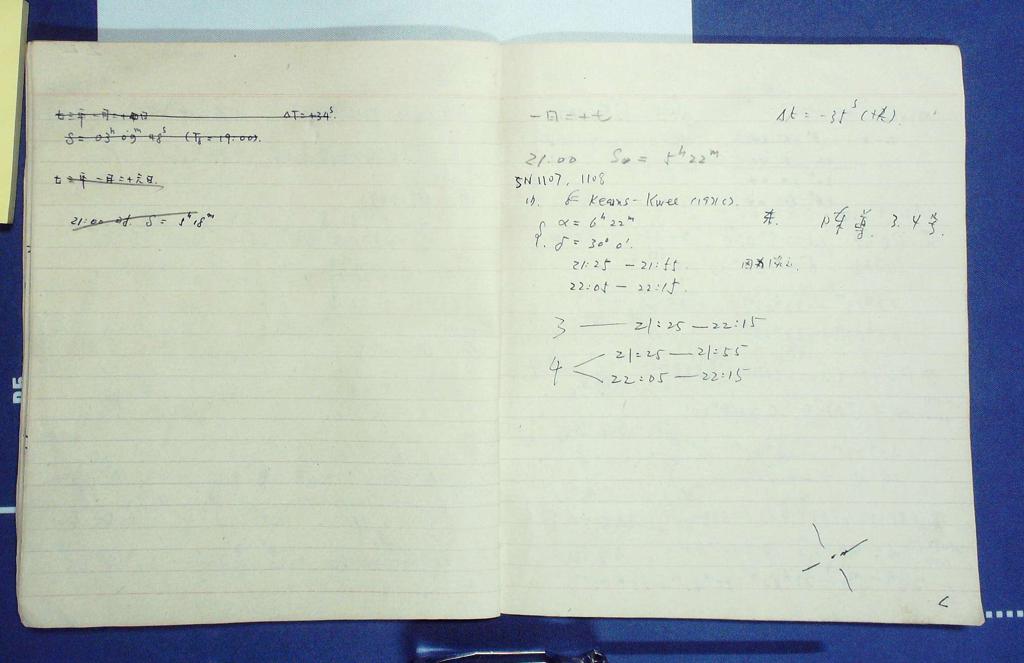 七三年一月二十四日 ΔT=+34ˢ.
S= 03ʰ 09ᵐ 48ˢ (T₈=19:00).
七三年一月二十六日.
21:00 S = 5ʰ18ᵐ
一月二十七 Δt = -35ˢ
21:00 S₀ = 5ʰ 22ᵐ
SN 1107, 1108
(1). Kearns-Kwee (1971c).
α = 6ʰ 22ᵐ
δ = 30° 0'. 3.4
21:25 - 21:55.
22:05 - 22:15.
3 — 21:25 — 22:15
4 21:25 — 21:55
22:05 — 22:15